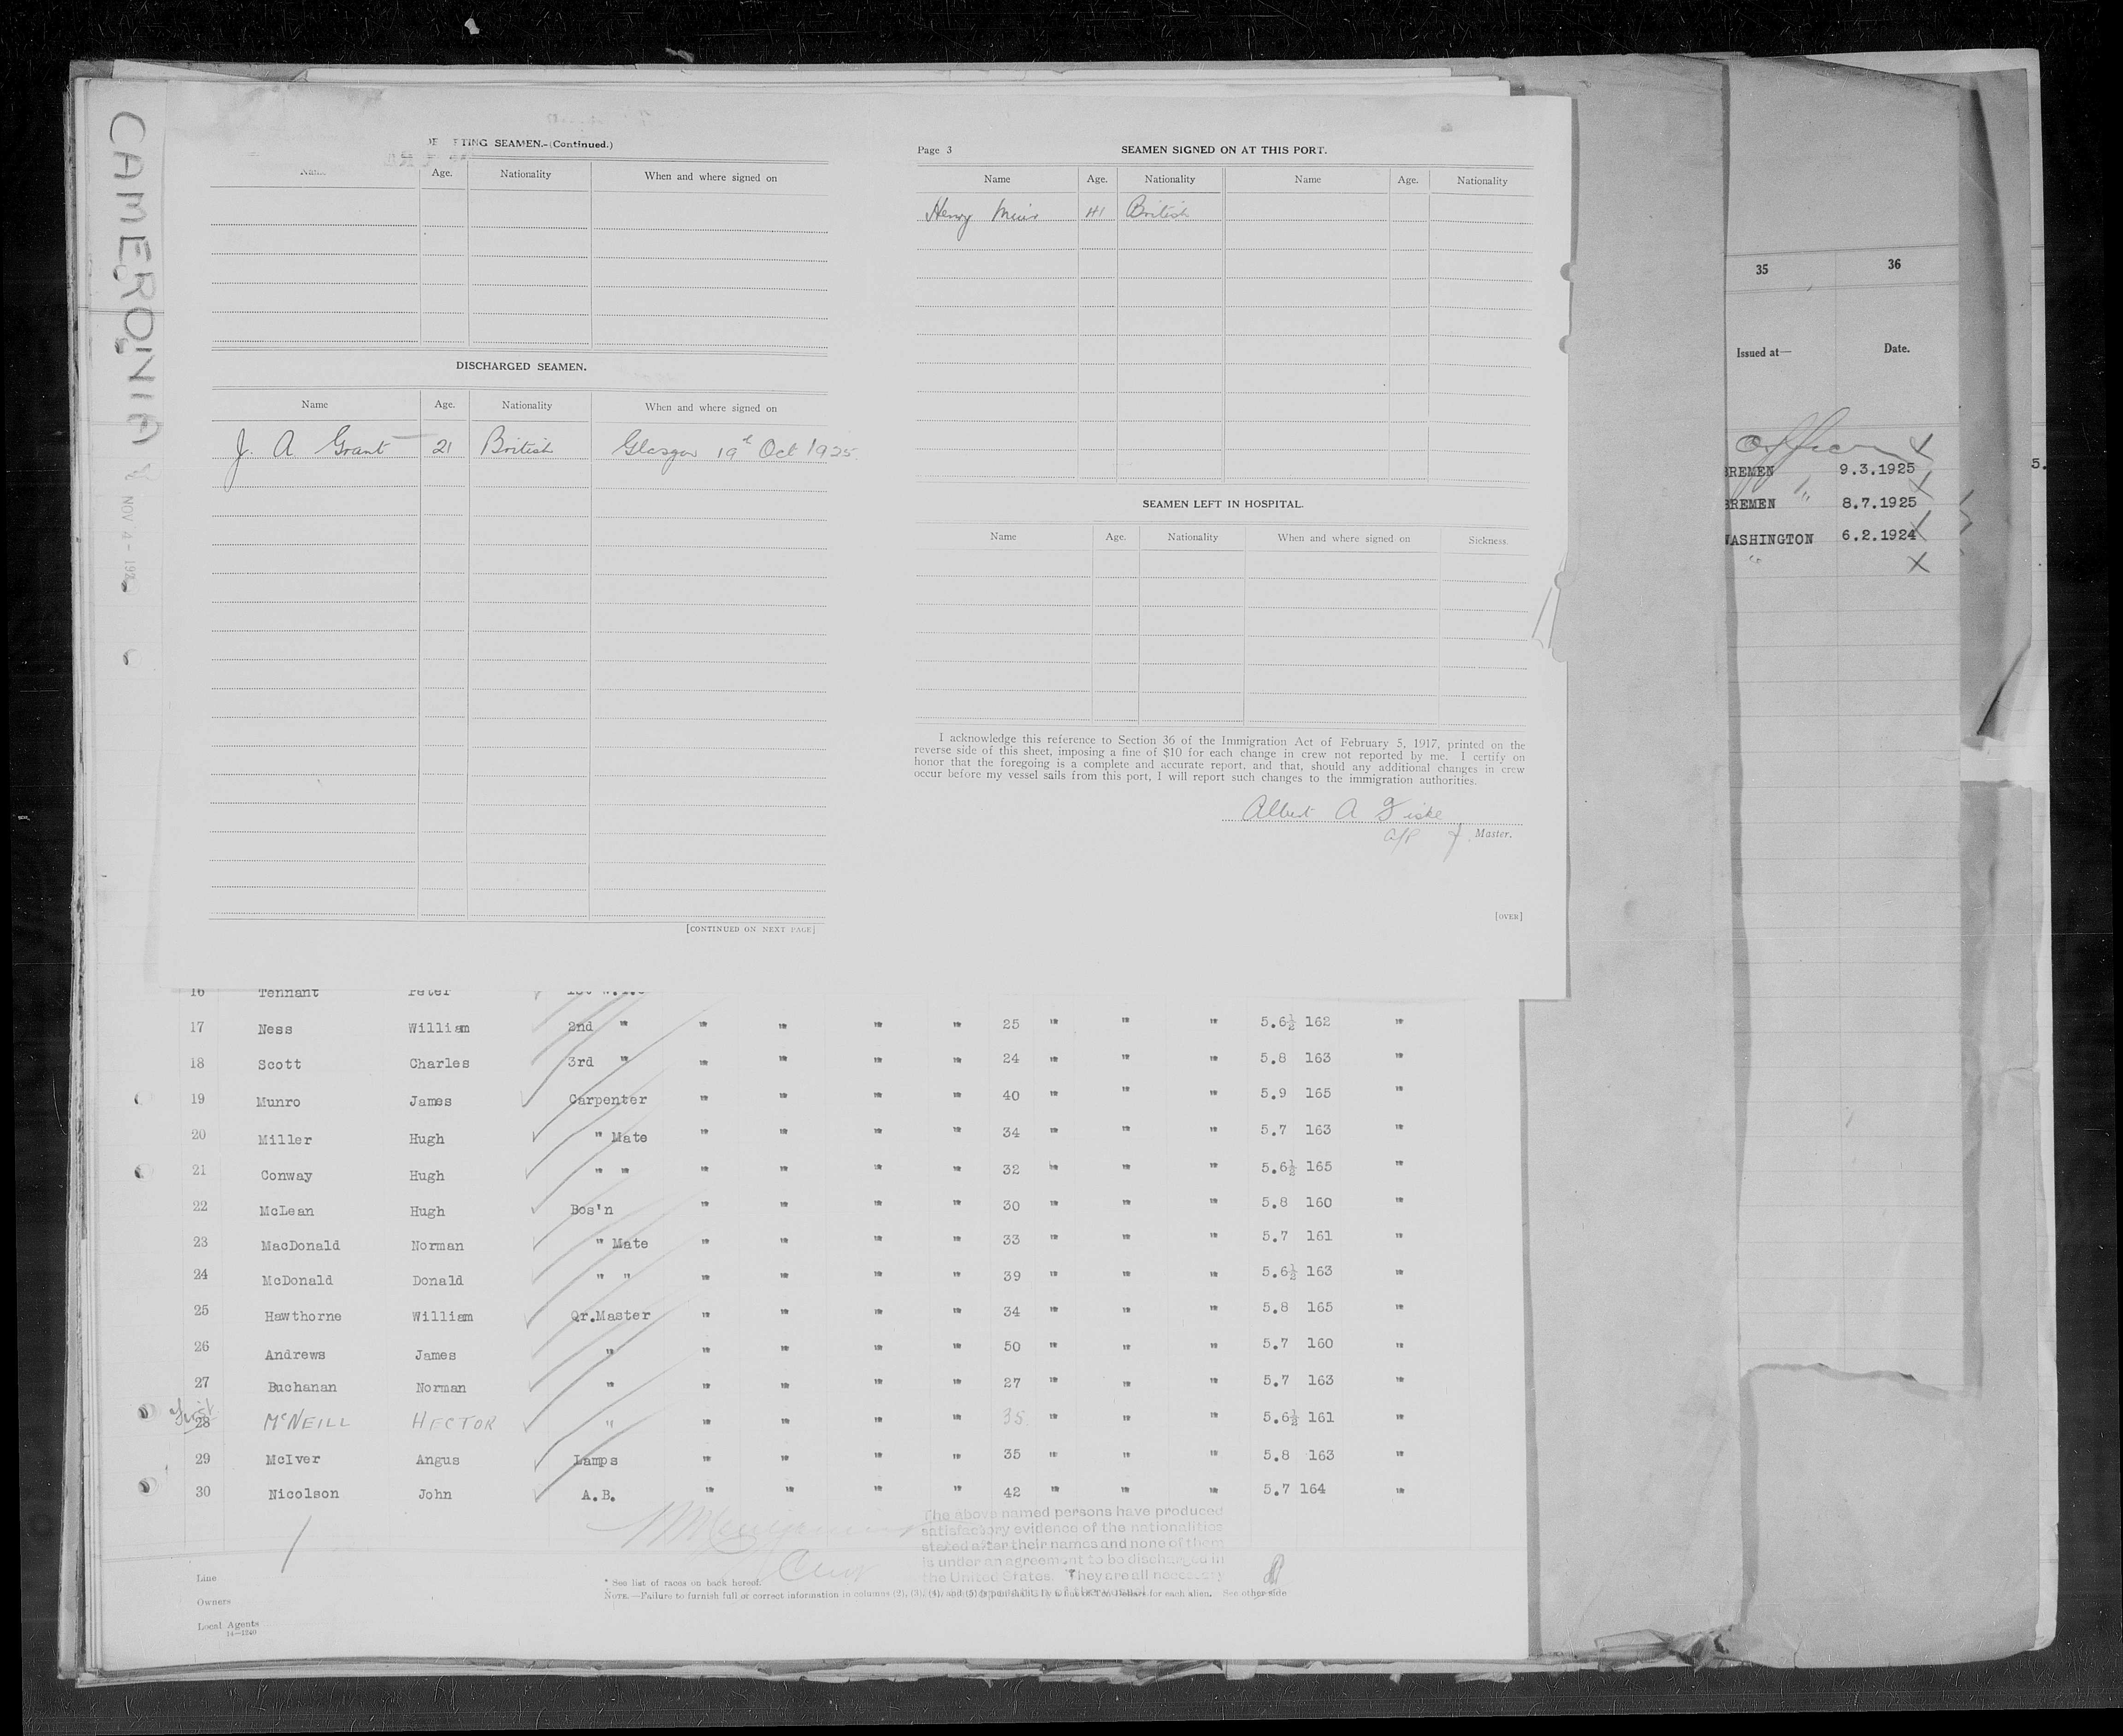 CAMERONIA
NOV 4 - 192
TING SEAMEN.-(Continued.)
Name Age. Nationality When and where signed on
DISCHARGED SEAMEN.
Name Age. Nationality When and where signed on
J. A Grant 21 British Glasgow 19th Oct 1925.
[CONTINUED ON NEXT PAGE]
Page 3 SEAMEN SIGNED ON AT THIS PORT.
Name Age. Nationality Name Age. Nationality
Henry Muir 41 British
SEAMEN LEFT IN HOSPITAL.
Name Age. Nationality When and where signed on Sickness.
I acknowledge this reference to Section 36 of the Immigration Act of February 5, 1917, printed on the
reverse side of this sheet, imposing a fine of $10 for each change in crew not reported by me. I certify on
honor that the foregoing is a complete and accurate report, and that, should any additional changes in crew
occur before my vessel sails from this port, I will report such changes to the immigration authorities.
Albert A Fiske
Master.
[OVER]
35 36
Issued at— Date.
BREMEN 9.3.1925
BREMEN " 8.7.1925
WASHINGTON 6.2.1924
5.
16 Tennant Peter
17 Ness William 2nd " " " " " 25 " " " 5.6½ 162 "
18 Scott Charles 3rd " " " " " 24 " " " 5.8 163 "
19 Munro James Carpenter " " " " 40 " " " 5.9 165 "
20 Miller Hugh " Mate " " " " 34 " " " 5.7 163 "
21 Conway Hugh " " " " " " 32 " " " 5.6½ 165 "
22 McLean Hugh Bos'n " " " " 30 " " " 5.8 160 "
23 MacDonald Norman " Mate " " " " 33 " " " 5.7 161 "
24 McDonald Donald " " " " " " 39 " " " 5.6½ 163 "
25 Hawthorne William Qr.Master " " " " 34 " " " 5.8 165 "
26 Andrews James " " " " " 50 " " " 5.7 160 "
27 Buchanan Norman " " " " " 27 " " " 5.7 163 "
First 28 McNEILL HECTOR " " " " " 35. " " " 5.6½ 161 "
29 McIver Angus Lamps " " " " 35 " " " 5.8 163 "
30 Nicolson John A.B. " " " " 42 " " " 5.7 164 "
The above named persons have produced
satisfactory evidence of the nationalities
stated after their names and none of them
is under an agreement to be discharged in
the United States. They are all necessary
Line
Owners
Local Agents
14—1240
* See list of races on back hereof.
NOTE.—Failure to furnish full or correct information in columns (2), (3), (4), and (5) is punishable by a fine of Ten Dollars for each alien. See other side